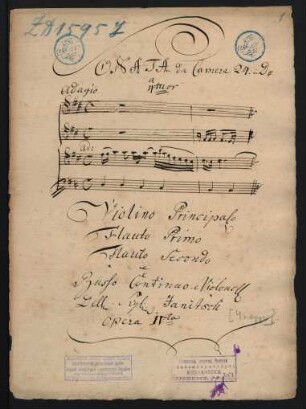 SONATA da Camera 24. Do
a 4tuor
Adagio
Violino Principale
Flauto Primo
Flauto Secondo
e
Basso Continuo e Violoncell
Dell Sigl. Janitsch
Opera IVta